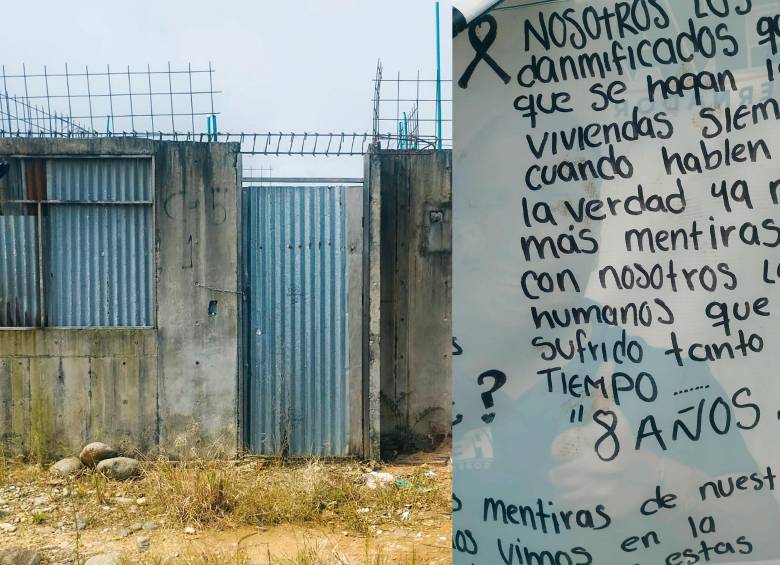 C-5
1
NOSOTROS LOS
danmificados q
que se hagan l
viviendas SIEM
cuando hablen
la verdad ya n
más mentiras
con nosotros L
humanos que
sufrido tanto
TIEMPO ......
?
"8 AÑOS
mentiras de nuest
os vimos en la
estas